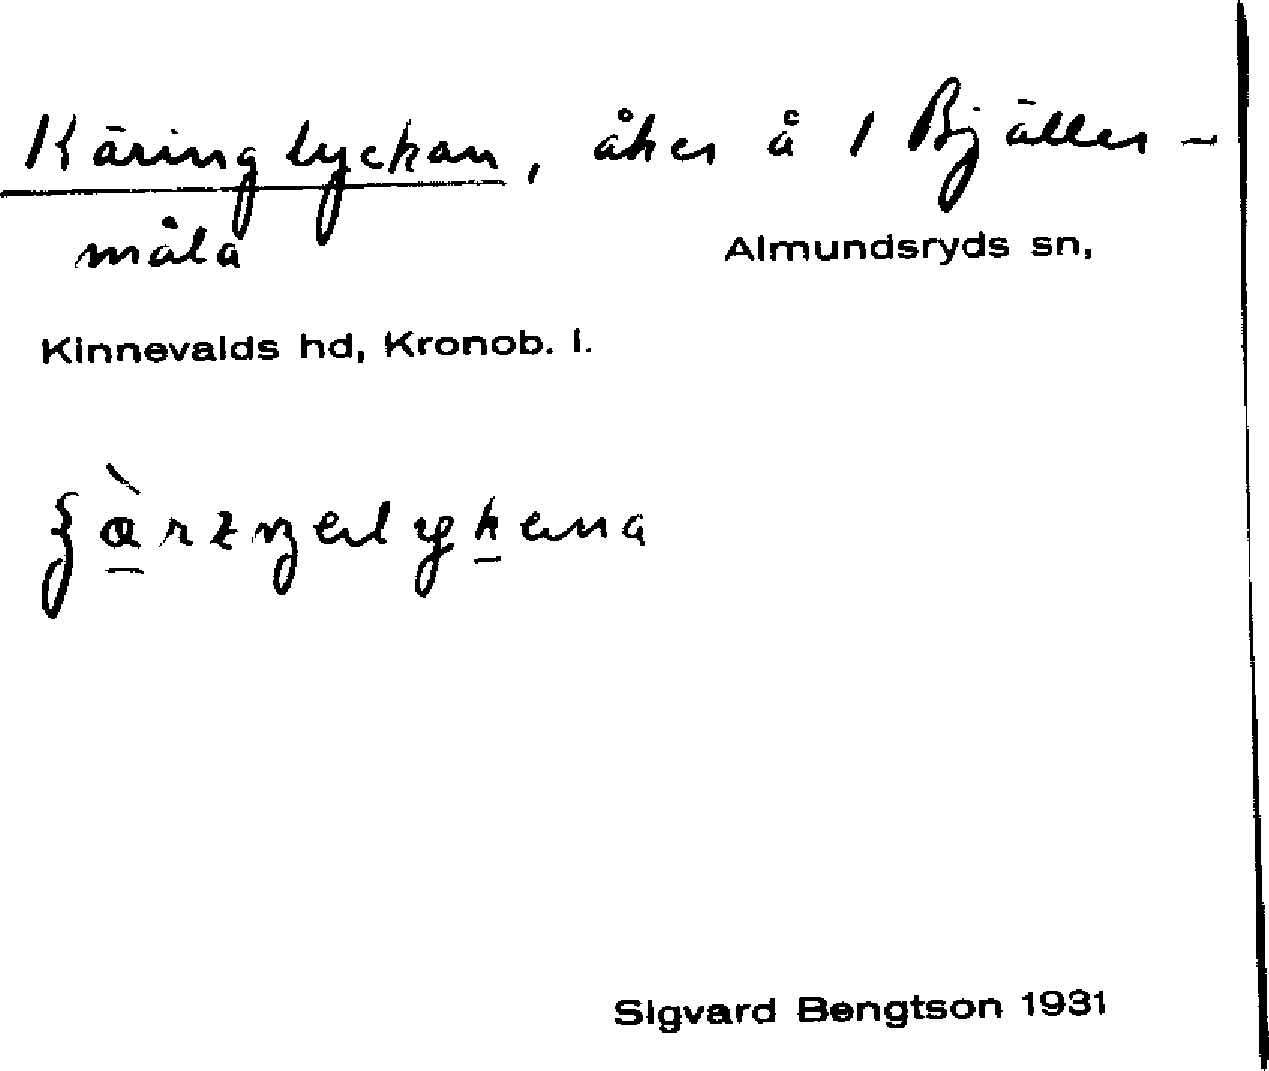 Käringlyckan, åker å 1 Bjäller-
måla
Almundsryds sn,
Kinnevalds hd, Kronob. l.
Sigvard Bengtson 1931